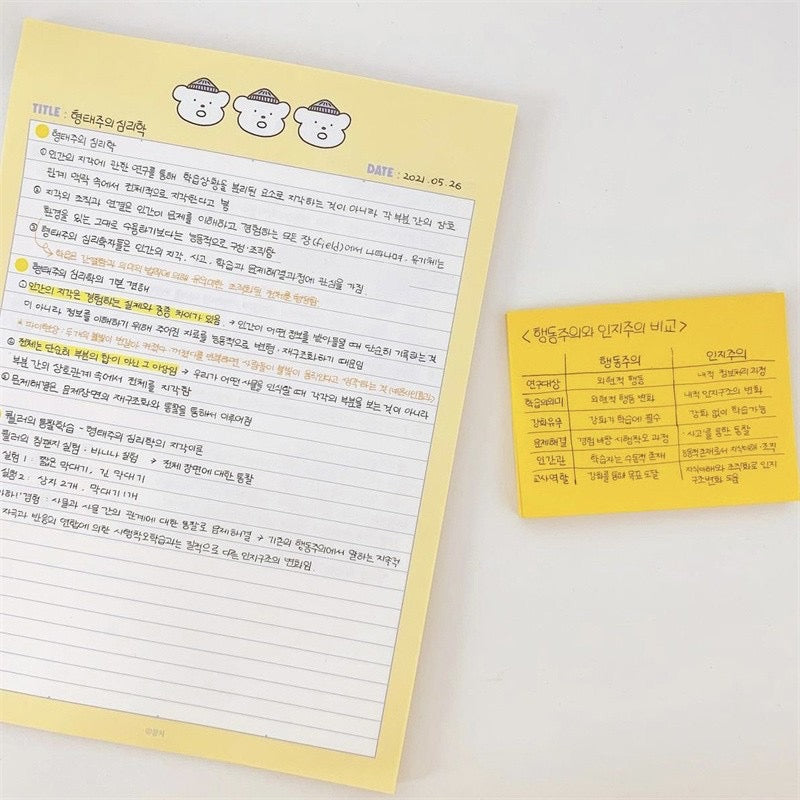 TITLE : 형태주의 심리학
DATE : 2021.05.26
형태주의 심리학
① 인간의 지각에 관한 연구를 통해 학습상황을 분리된 요소로 지각하는 것이 아니라 각 부분 간의 상호
관계 맥락 속에서 전체적으로 지각한다고 봄
② 지각의 조직과 연결은 인간이 문제를 이해하고 경험하는 모든 장(field)에서 나타나며, 유기체는
환경을 있는 그대로 수용하기보다는 능동적으로 구성·조직함
③ 형태주의 심리학자들은 인간의 지각, 사고, 학습과 문제해결과정에 관심을 가짐
학습은 법칙에 의해 조직화된 전체를
형태주의 심리학의 기본 견해
① 인간의 지각은 경험하는 실제와 종종 차이가 있음. → 인간이 어떤 정보를 받아들일 때 단순히 기록하는 것
이 아니라 정보를 이해하기 위해 주어진 자료를 능동적으로 변형·재구조화하기 때문임
* 파이현상 : 두 개의 불빛이 번갈아 켜졌다 꺼졌다를 반복하면 사람들이 불빛이 움직인다고 생각하는 것 (네온사인효과)
② 전체는 단순히 부분의 합이 아닌 그 이상임 → 우리가 어떤 사물을 인식할 때 각각의 부분을 보는 것이 아니라
부분 간의 상호관계 속에서 전체를 지각함
③ 문제해결은 문제장면의 재구조화와 통찰을 통해서 이루어짐
쾰러의 통찰학습 - 형태주의 심리학의 지각이론
쾰러의 침팬지 실험 : 바나나 실험 → 전체 장면에 대한 통찰
실험 1 : 짧은 막대기, 긴 막대기
실험 2 : 상자 2개, 막대기 1개
'아하!' 경험 : 사물과 사물 간의 관계에 대한 통찰로 문제해결 → 기존의 행동주의에서 말하는 지속적
자극과 반응의 연합에 의한 시행착오학습과는 질적으로 다른 인지구조의 변화임
<행동주의와 인지주의 비교>
행동주의 인지주의
연구대상 외현적 행동 내적 정보처리 과정
학습의 의미 외현적 행동 변화 내적 인지구조의 변화
강화유무 강화가 학습에 필수 강화 없이 학습가능
문제해결 경험 바탕 시행착오 과정 '사고'를 통한 통찰
인간관 학습자는 수동적 존재 능동적 존재로서 지식이해·조직
교사역할 강화를 통해 목표 도달 지식이해와 조직화로 인지
구조변화 도움